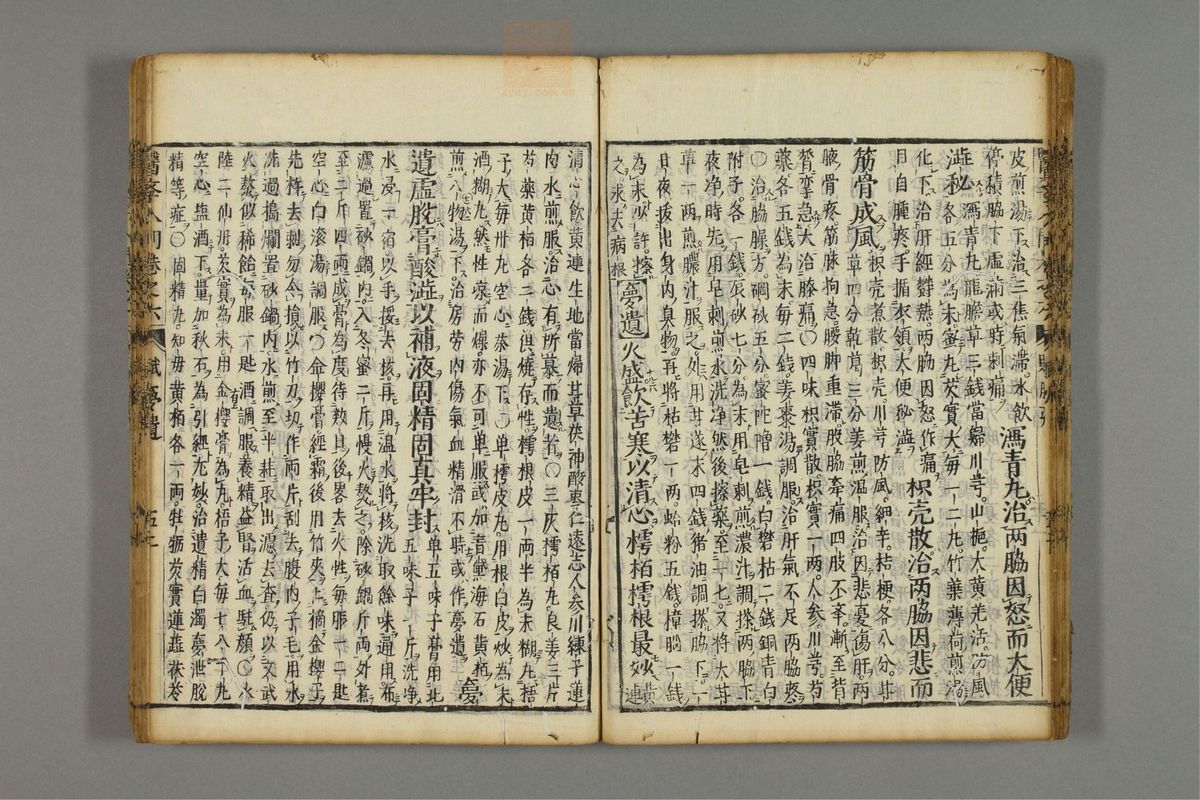 皮煎湯下治三焦氣滯水飲
停積脇下虛滿或時刺痛
瀉青丸治兩脇因怒而大便
澁秘
瀉青丸龍膽草三錢當歸川芎山梔大黃羗活防風
各一錢五分為末蜜丸芡實大每一二丸竹葉薄荷煎湯
化下治肝經鬱熱兩脇因怒作痛
目自腫疼手循衣領大便秘澁
枳壳散治兩脇因悲而
筋骨成風
枳壳煮散枳壳川芎防風細辛桔梗各八分甘
草四分乾葛三分姜煎温服治因悲憂傷肝兩
脇骨疼筋脉拘急腰脚重滯股脇牽痛四肢不舉漸至背
膂攣急大治脇痛〇四味枳實散枳實一兩人参川芎芍
藥各五錢為末每二錢姜棗湯調服治肝氣不足兩脇疼
〇治脇臊方碙砂五分蜜陀僧一錢白礬枯二錢銅青白
附子各一錢辰砂七分為末用皂刺煎濃汁調搽兩脇下
夜净時先用皂刺煎水洗净然後擦藥至三七又將大甘
草一兩煎膿汁服之外用甘遂末四錢猪油調搽脇下一
日夜拔出身内臭物再將枯礬一兩蛤粉五錢樟腦一錢
為末少許擦
之求去病根
夢遺 火盛飲苦寒以清心樗栢樗根最妙
黃連
清心飲黃連生地當歸甘草茯神酸棗仁遠志人參川練子蓮
肉水煎服治心有所慕而遺者〇三灰樗栢丸良姜三片
芍藥黃栢各二錢但燒存性樗根皮一兩半為末糊丸梧
子大每卅丸空心茶湯下〇單樗皮丸用根白皮炒為末
酒糊丸然性凉而燥亦不可單服或加青黛海石黃栢
煎八物湯下治房勞内傷氣血精滑不時或作夢遺
夢
遺虛脫膏酸澁以補液固精固真牢封
單五味子膏用北
五味子一斤洗净
水浸一宿以手挼去核再用温水將核洗取餘味通用布
濾過置砂鍋内入冬蜜二斤慢火熬之除砂鍋斤兩外煮
至二斤四兩成膏為度待數日後畧去火性每服一二匙
空心白滚湯調服〇金櫻膏經霜後用竹夾上摘金櫻子
先杵去刺勿令損以竹刀切作兩片刮去腹内子毛用水
洗過搗爛置砂鍋内水煎至半耗取出濾去查仍以文武
火熬似稀飴每服一匙酒調服養精益腎活血駐顏〇水
陸二仙丹芡實為末用金櫻膏為丸梧子大每七八十丸
空心塩酒下量加秋石為引經尤妙治遺精白濁夢泄脫
精等症〇固精丸知母黃栢各一兩牡蛎芡實蓮蕋茯苓